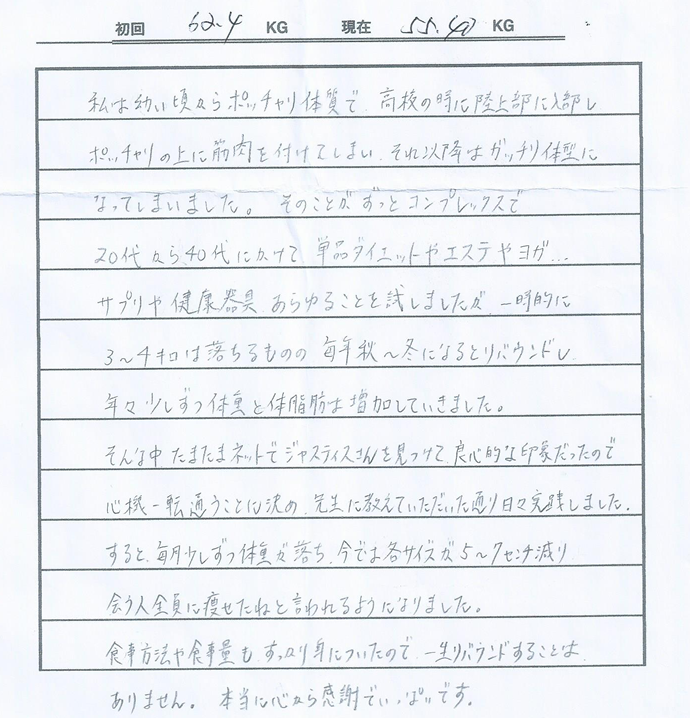 初回 62.4 KG 現在 55.40 KG
私は幼い頃からポッチャリ体質で、高校の時に陸上部に入部し
ポッチャリの上に筋肉を付けてしまい、それ以降はガッチリ体型に
なってしまいました。 そのことがずっとコンプレックスで
20代から40代にかけて、単品ダイエットやエステやヨガ…
サプリや健康器具、あらゆることを試しましたが、一時的に
3〜4キロは落ちるものの 毎年秋〜冬になるとリバウンドし、
年々少しずつ体重と体脂肪は増加していきました。
そんな中たまたまネットでジャスティスさんを見つけて、良心的な印象だったので
心機一転通うことに決め、先生に教えていただいた通り日々実践しました。
すると、毎月少しずつ体重が落ち、今では各サイズが5〜7センチ減り
会う人全員に痩せたねと言われるようになりました。
食事方法や食事量も、すっかり身についたので、一生リバウンドすることは
ありません。 本当に心から感謝でいっぱいです。